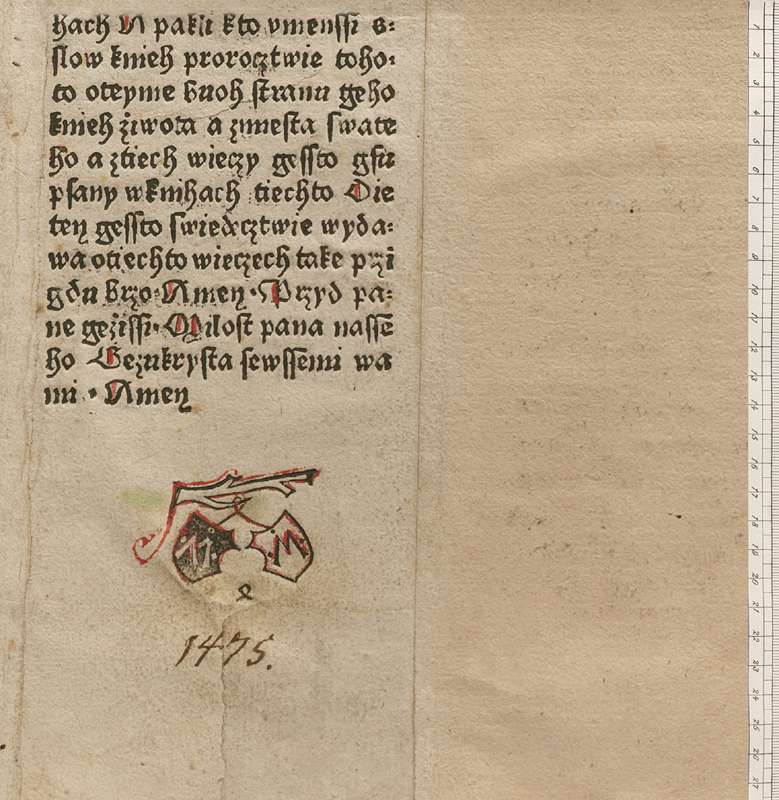 hach A pakli kto vmenssi s꞉
slow knieh prorocztwie toho꞉
to oteyme buoh stranu geho
knieh żiwota a zmesta swate
ho a ztiech wieczy gessto gsu
psany wknihach tiechto Die
ten gessto swiedecztwie wyda꞉
wa otiechto wieczech take przi
gdu brzo· Amen · Przyd pa꞉
ne geżissi· Milost pana nasse
ho Gezukrysta sewssemi wa
mi · Amen
M
1475.